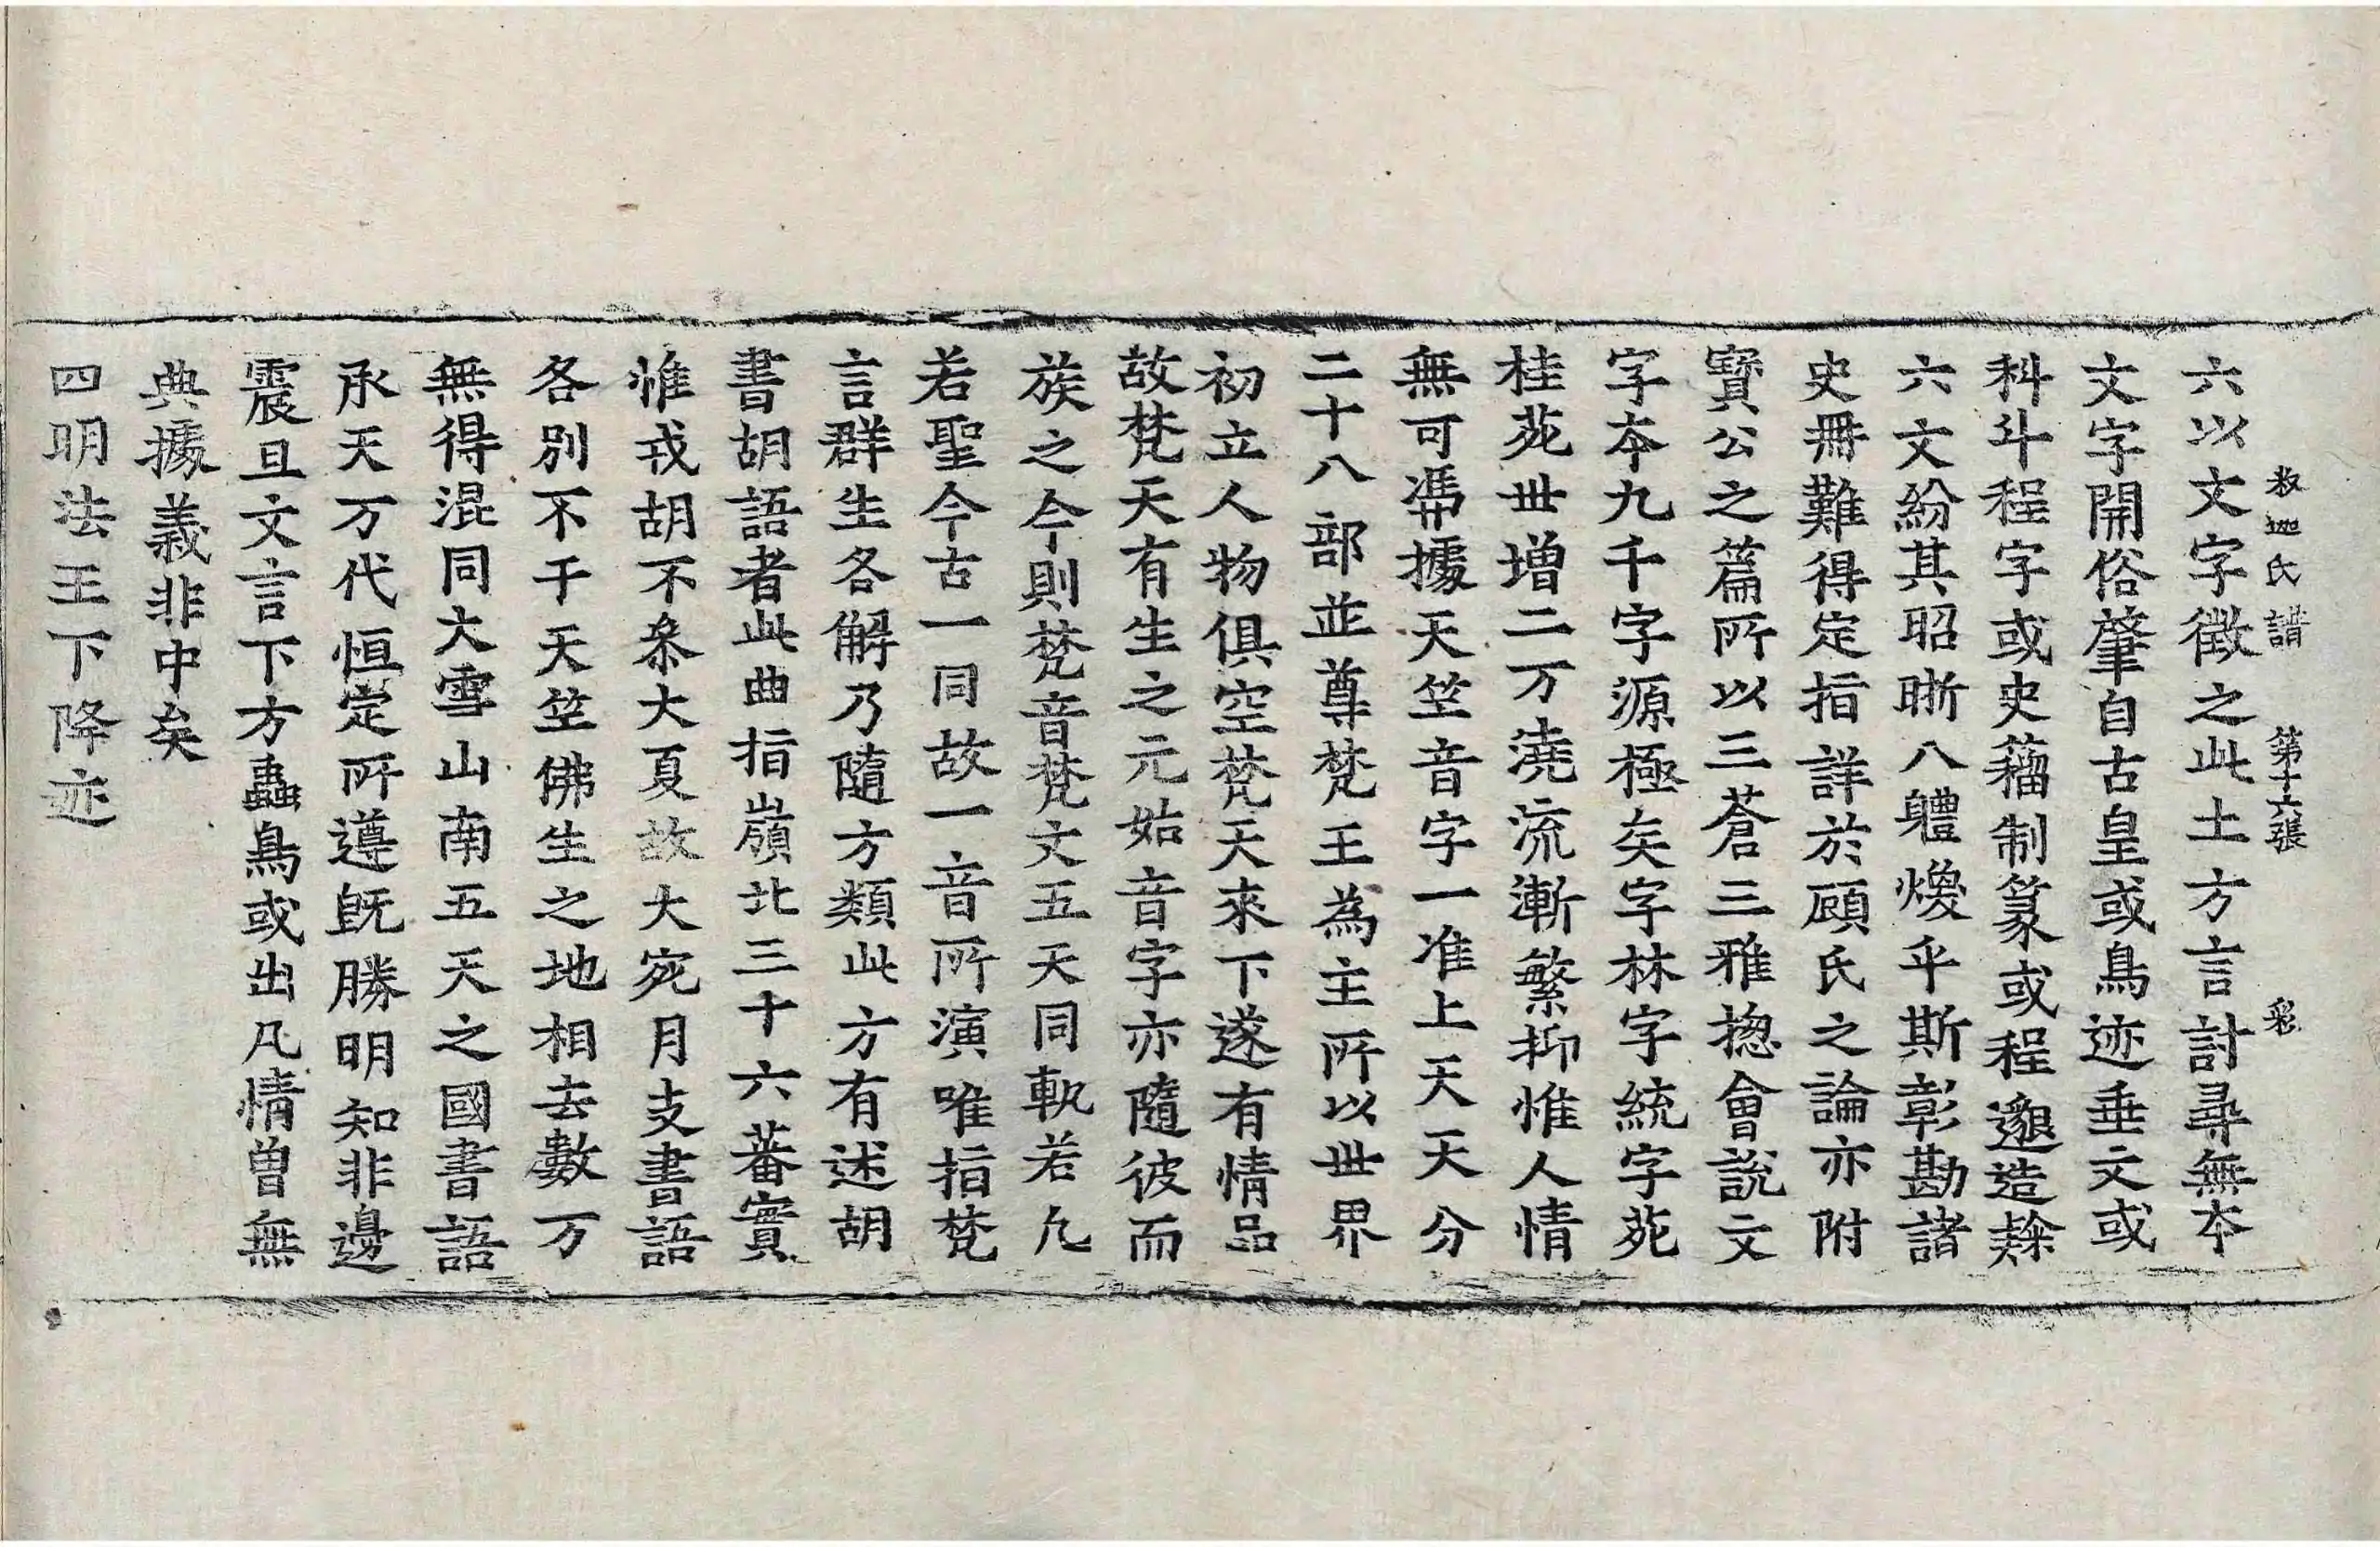 釋迦氏譜 第十六張 彩
六以文字徵之此土方言討尋無本
文字開俗肇自古皇或鳥迹垂文或
科斗程字或史籀制篆或程邈造隸
六文紛其昭晣八體煥乎斯彰勘諸
史冊難得定指詳於顧氏之論亦附
寶公之篇所以三蒼三雅揔會說文
字本九千字源極矣字林字統字苑
桂苑世增二万澆流漸繁抑惟人情
無可馮據天竺音字一准上天天分
二十八部並尊梵王為主所以世界
初立人物俱空梵天來下遂有情品
故梵天有生之元始音字亦隨彼而
族之今則梵音梵文五天同軌若凢
若聖今古一同故一音所演唯指梵
言群生各解乃隨方類此方有述胡
書胡語者此曲指嶺北三十六蕃實
惟戎胡不叅大夏故大宛月支書語
各別不干天竺佛生之地相去數万
無得混同大雪山南五天之國書語
承天万代恒定所遵旣勝明知非邊
震旦文言下方蟲鳥或出凡情曽無
典據義非中矣
四明法王下降迹